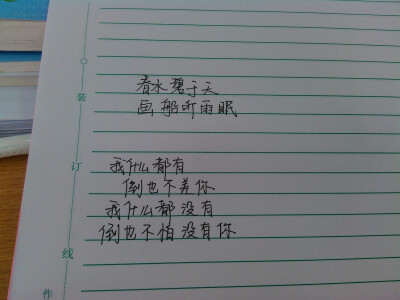 春水碧于天
画船听雨眠
我什么都有
倒也不差你
我什么都没有
倒也不怕没有你
装
订
线
作